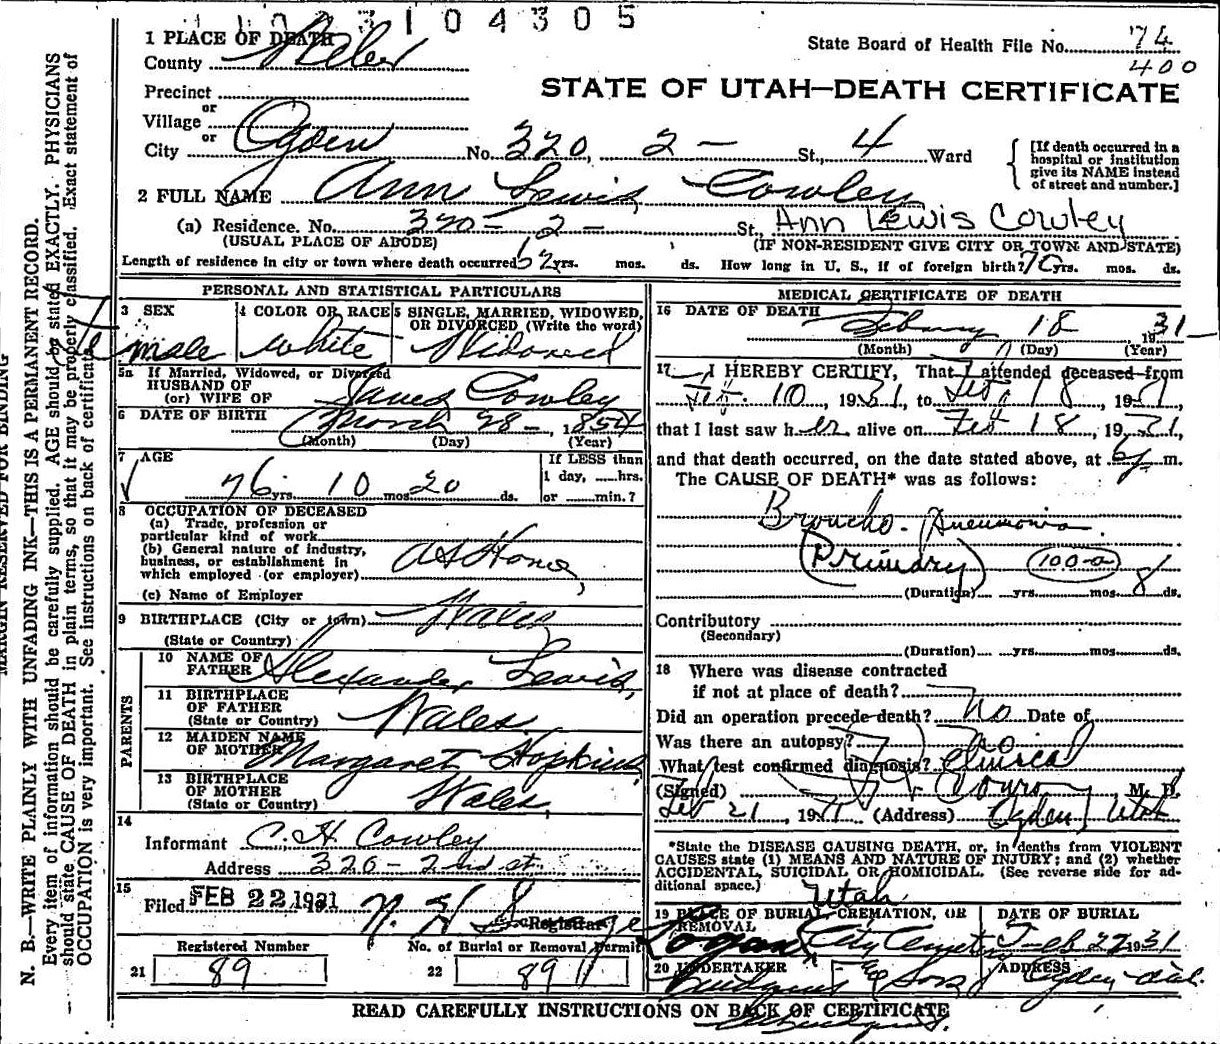 3104305
1 PLACE OF DEATH
State Board of Health File No. 74
400
County Weber
STATE OF UTAH—DEATH CERTIFICATE
Precinct
or
Village
or
City Ogden No. 320, 2 - St., 4 Ward
[If death occurred in a hospital or institution give its NAME instead of street and number.]
2 FULL NAME Ann Lewis Cowley
(a) Residence. No. 320 - 2 - St., Ann Lewis Cowley
(USUAL PLACE OF ABODE) (IF NON-RESIDENT GIVE CITY OR TOWN AND STATE)
Length of residence in city or town where death occurred 62 yrs. mos. ds. How long in U. S., if of foreign birth? 70 yrs. mos. ds.
PERSONAL AND STATISTICAL PARTICULARS
3 SEX Female
4 COLOR OR RACE White
5 SINGLE, MARRIED, WIDOWED, OR DIVORCED (Write the word) Widowed
5a If Married, Widowed, or Divorced
HUSBAND OF
(or) WIFE OF James Cowley
6 DATE OF BIRTH March 28 - 1854
(Month) (Day) (Year)
7 AGE
If LESS than
1 day, ......hrs.
76 yrs. 10 mos. 20 ds. or ......min.?
8 OCCUPATION OF DECEASED
(a) Trade, profession or
particular kind of work
(b) General nature of industry,
business, or establishment in
which employed (or employer) At Home
(c) Name of Employer
9 BIRTHPLACE (City or town) Wales
(State or Country)
PARENTS
10 NAME OF
FATHER Alexander Lewis
11 BIRTHPLACE
OF FATHER
(State or Country) Wales
12 MAIDEN NAME
OF MOTHER Margaret Hopkins
13 BIRTHPLACE
OF MOTHER
(State or Country) Wales
14
Informant C. H. Cowley
Address 320 - 2nd st.
15
Filed FEB 22 1931
Registrar
Registered Number No. of Burial or Removal Permit
21 89 22 89
MEDICAL CERTIFICATE OF DEATH
16 DATE OF DEATH February 18 1931
(Month) (Day) (Year)
17 I HEREBY CERTIFY, That I attended deceased from
Feb. 10, 1931, to Feb. 18, 1931,
that I last saw her alive on Feb 18, 1931,
and that death occurred, on the date stated above, at m.
The CAUSE OF DEATH* was as follows:
Broncho-Pneumonia
(Primary) 100-a
(Duration) yrs. mos. 8 ds.
Contributory
(Secondary)
(Duration) yrs. mos. ds.
18 Where was disease contracted
if not at place of death?
Did an operation precede death? No Date of
Was there an autopsy? No
What test confirmed diagnosis? Clinical
(Signed) M. D.
Feb 21, 1931 (Address) Ogden, Utah
*State the DISEASE CAUSING DEATH, or, in deaths from VIOLENT
CAUSES state (1) MEANS AND NATURE OF INJURY; and (2) whether
ACCIDENTAL, SUICIDAL OR HOMICIDAL. (See reverse side for ad-
ditional space.)
Utah
19 PLACE OF BURIAL, CREMATION, OR REMOVAL DATE OF BURIAL
Logan City Cemetery Feb 22 1931
20 UNDERTAKER ADDRESS
& Sons Ogden
READ CAREFULLY INSTRUCTIONS ON BACK OF CERTIFICATE
MARGIN RESERVED FOR BINDING
N. B.—WRITE PLAINLY WITH UNFADING INK—THIS IS A PERMANENT RECORD.
Every item of information should be carefully supplied. AGE should be stated EXACTLY. PHYSICIANS
should state CAUSE OF DEATH in plain terms, so that it may be properly classified. Exact statement of
OCCUPATION is very important. See instructions on back of certificate.